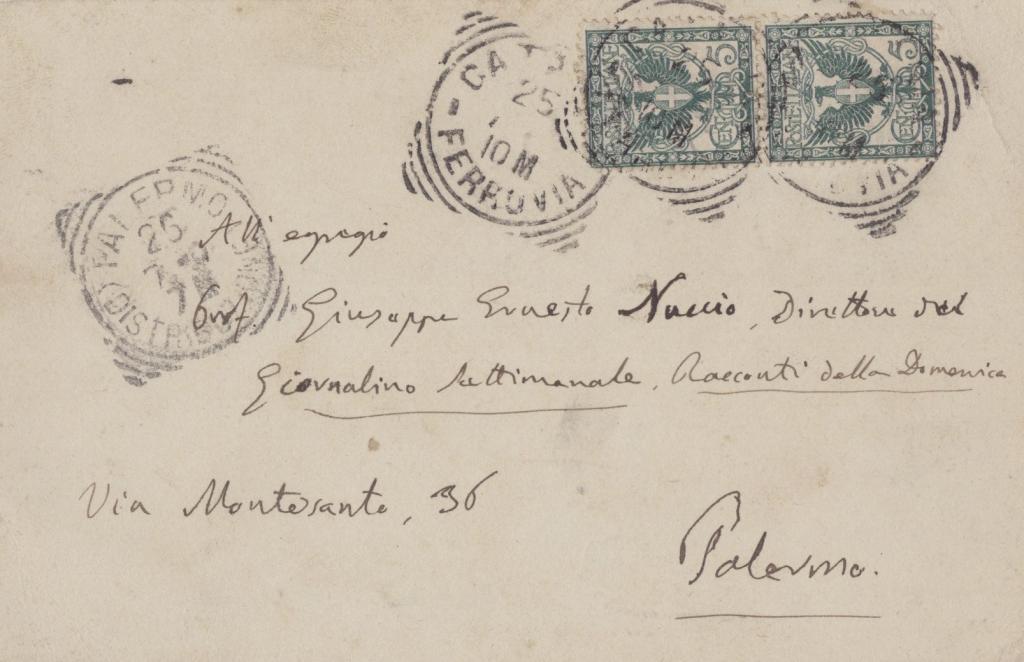 FERRUVIA
25
10 M
POSTE ITALIANE
CENTESIMI
5
POSTE ITALIANE
CENTESIMI
5
PALERMO
25
7
All' egregio
Prof. Giuseppe Ernesto Nuccio, Direttore del
Giornalino settimanale, Racconti della Domenica
Via Montesanto, 36
Palermo.